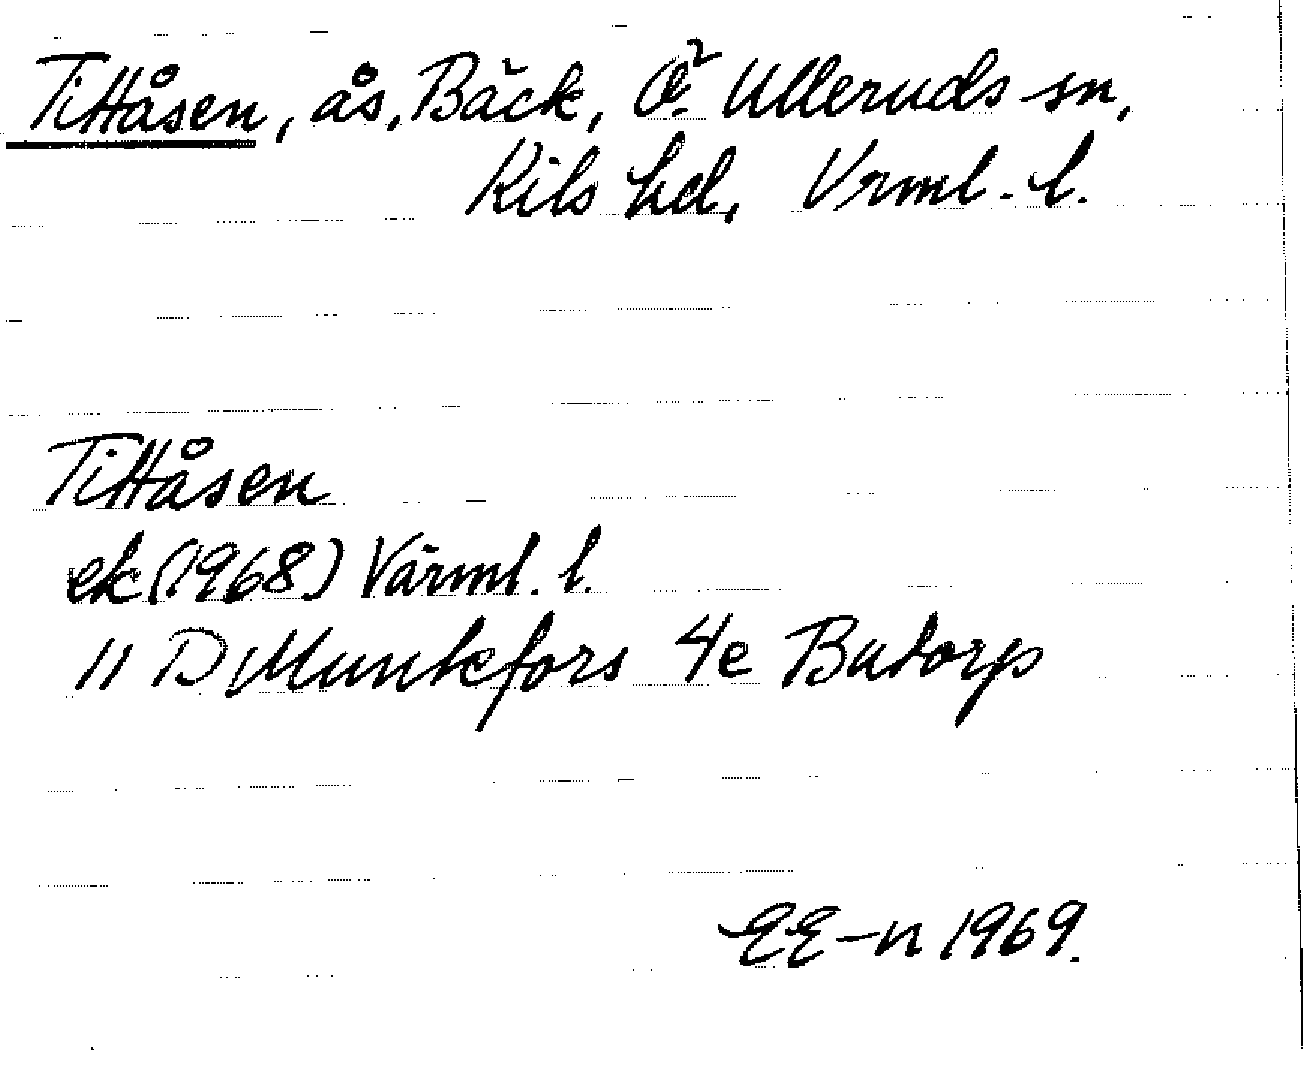 Tittåsen, ås, Bäck, Ö. Ulleruds sn,
Kils hd, Vrml. l.
Tittåsen
ek (1968) Värml. l.
11 D Munkfors 4e Butorp
EE-n 1969.